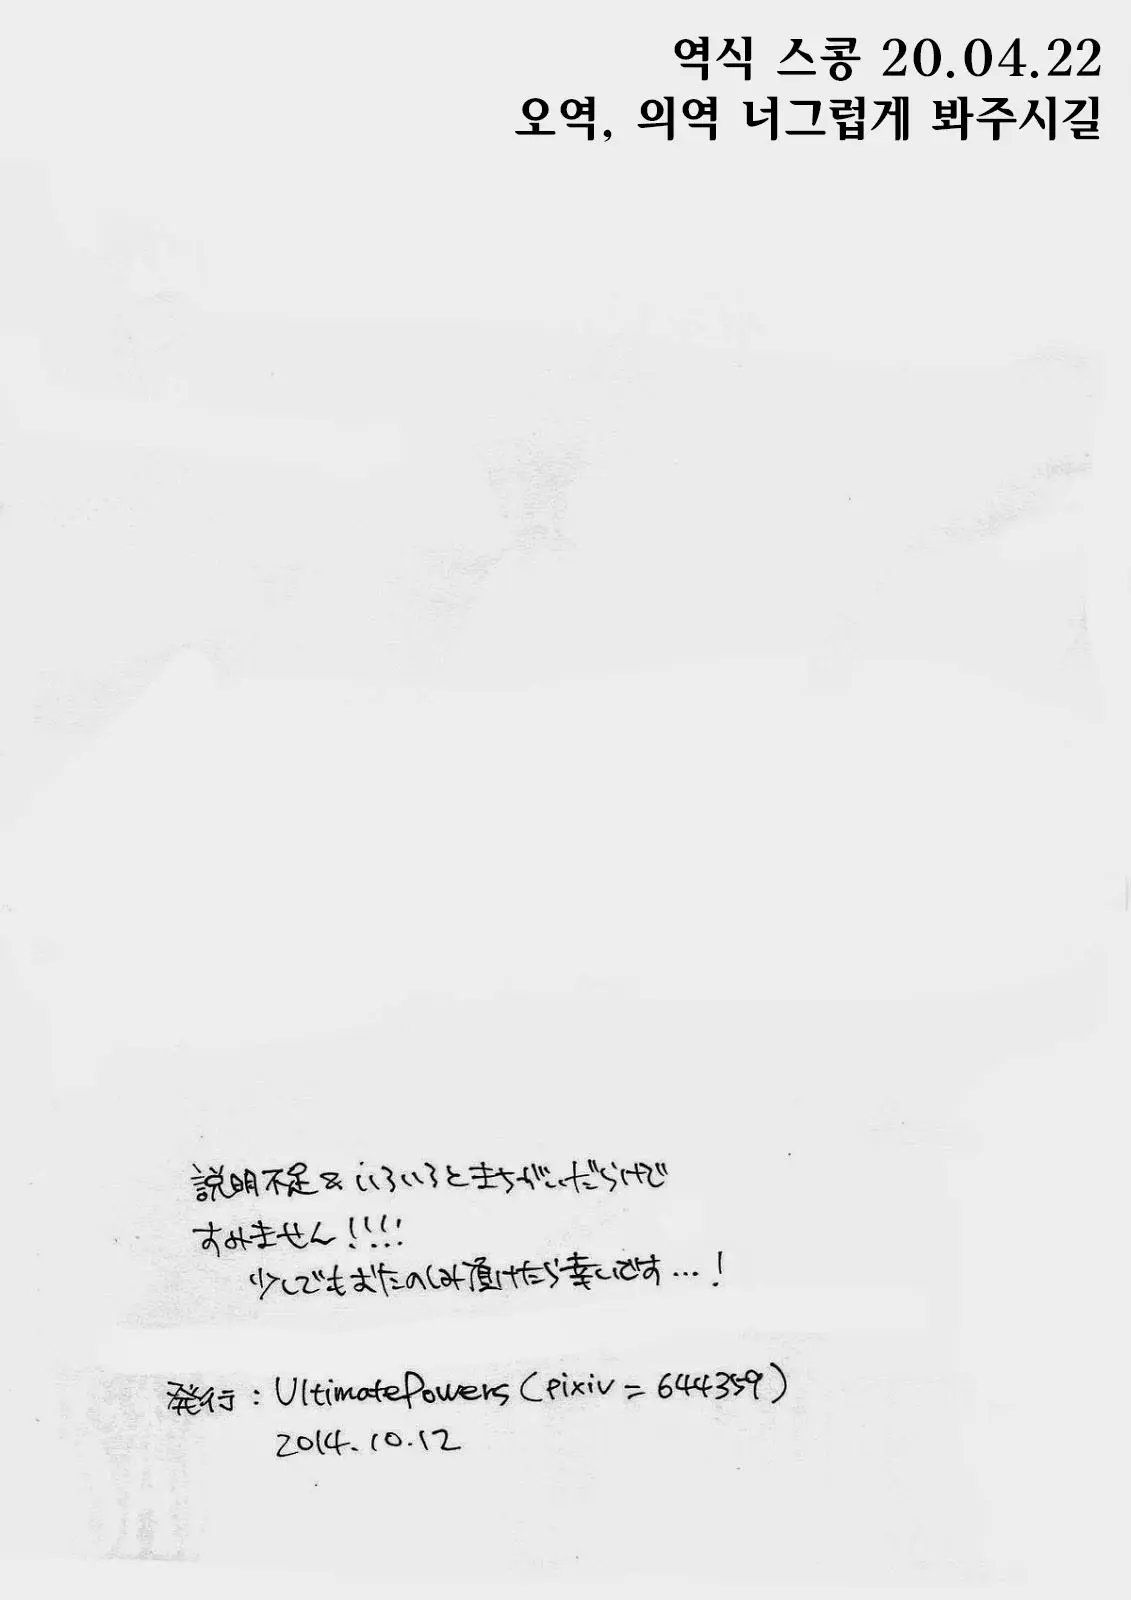 역식 스콩 20.04.22
오역, 의역 너그럽게 봐주시길
説明不足&いろいろとまちがいだらけで
すみません!!!!
少しでもおたのしみ頂けたら幸いです…!
発行:UltimatePowers(pixiv=644359)
2014.10.12